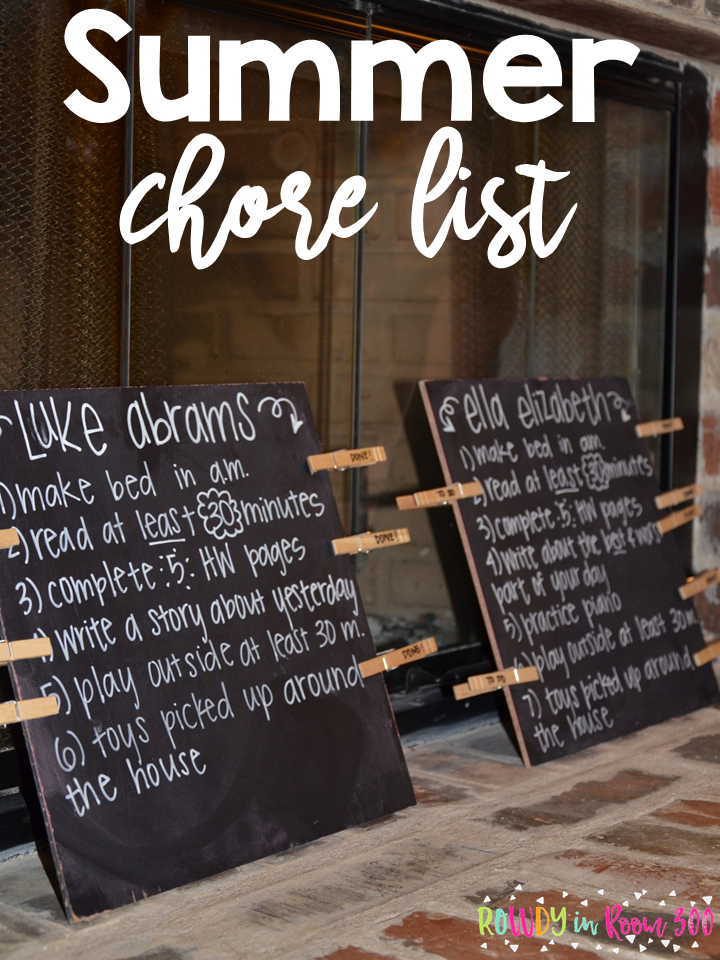 Summer
chore list
Luke abrams
1) make bed in a.m.
2) read at least 30 minutes
3) complete :5: HW pages
4) write a story about yesterday
5) play outside at least 30 m.
6) toys picked up around
the house
DONE!
DONE!
DONE!
ella elizabeth
1) make bed in a.m.
2) read at least 30 minutes
3) complete :5: HW pages
4) write about the best &
part of your day
5) practice piano
play outside at least 30 m
7) toys picked up around
the house
TO DO
TO DO
ROWDY in Room 300